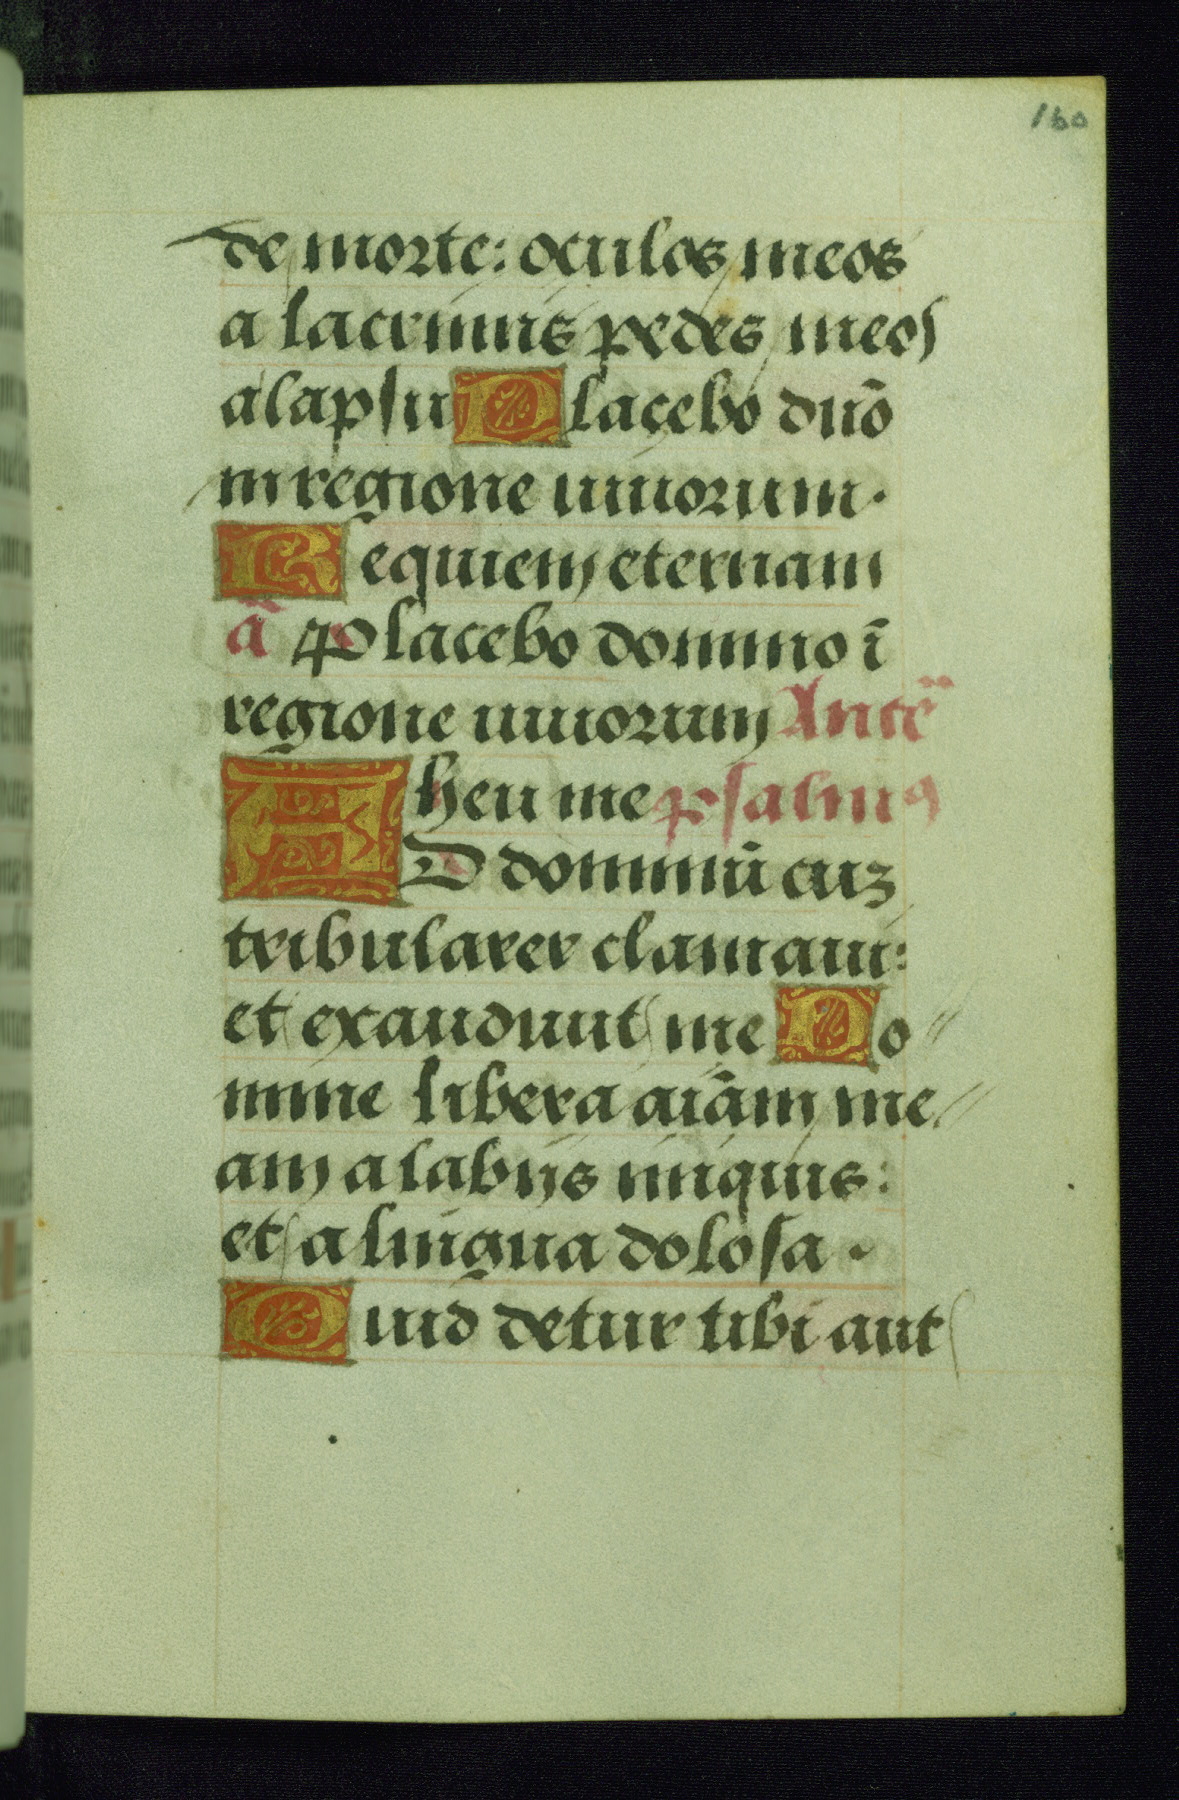 160
de morte: oculos meos
a lacrimis pedes meos
a lapsu Placebo dn̄o
in regione uiuorum.
Requiem eternam
ā Placebo domino ī
regione uiuorum Antē
heu me psalmꝰ
AD dominū cuꝫ
tribularer clamaui:
et exaudiuit me Do
mine libera aiām me
am a labijs iniquis:
et a lingua dolosa.
Quid detur tibi aut